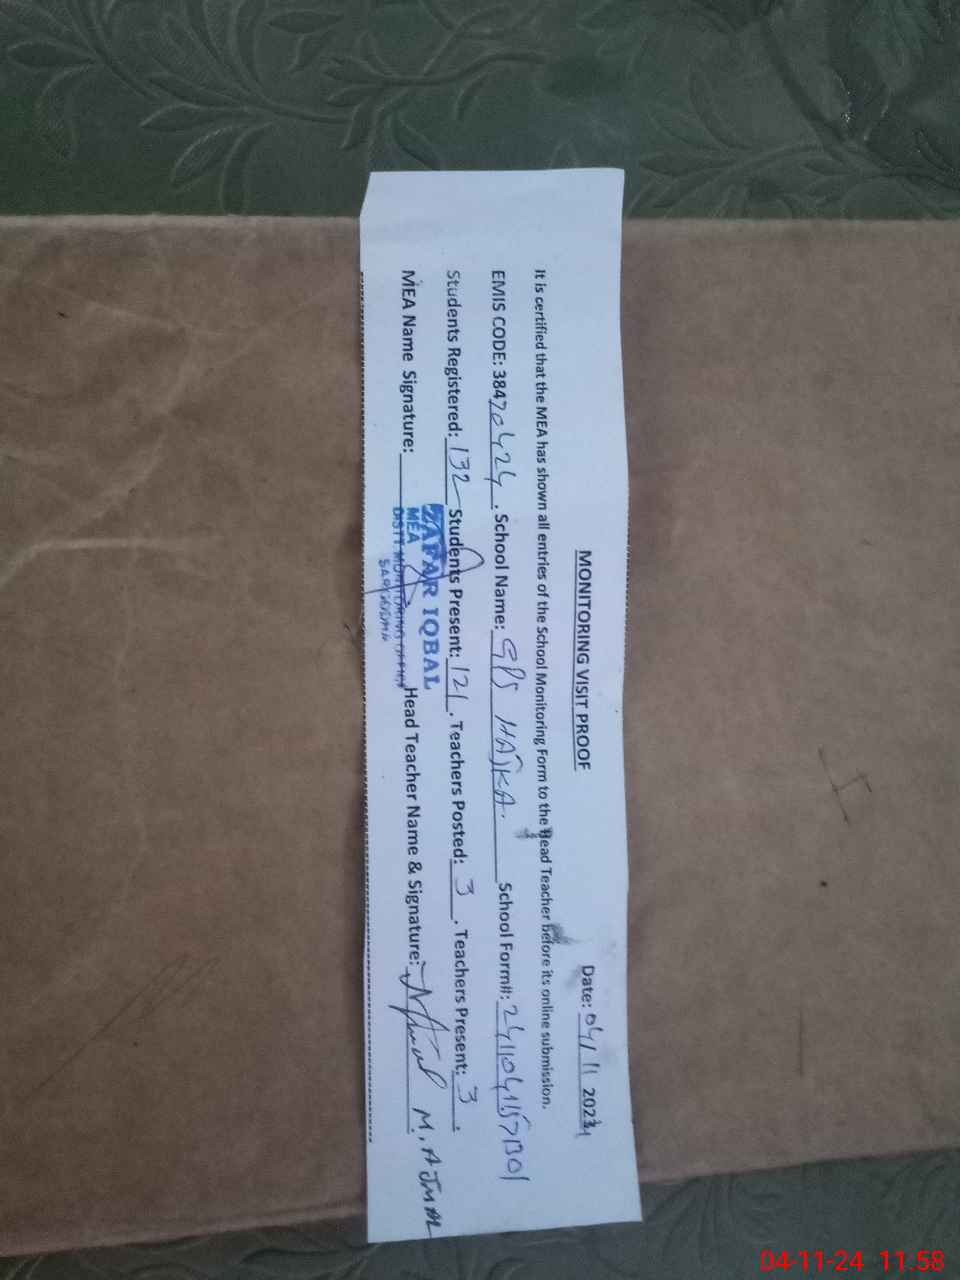 MONITORING VISIT PROOF
Date: 04/11 2024
It is certified that the MEA has shown all entries of the School Monitoring Form to the Head Teacher before its online submission.
EMIS CODE: 38420424. School Name: GPS HAJKA. School Form#:
Students Registered: 132 Students Present: 121. Teachers Posted: 3. Teachers Present: 3.
MEA Name Signature: Head Teacher Name & Signature:
ZAFAR IQBAL
MEA
DISTT MONITORING OFFICE
SARGODHA
04-11-24 11.58